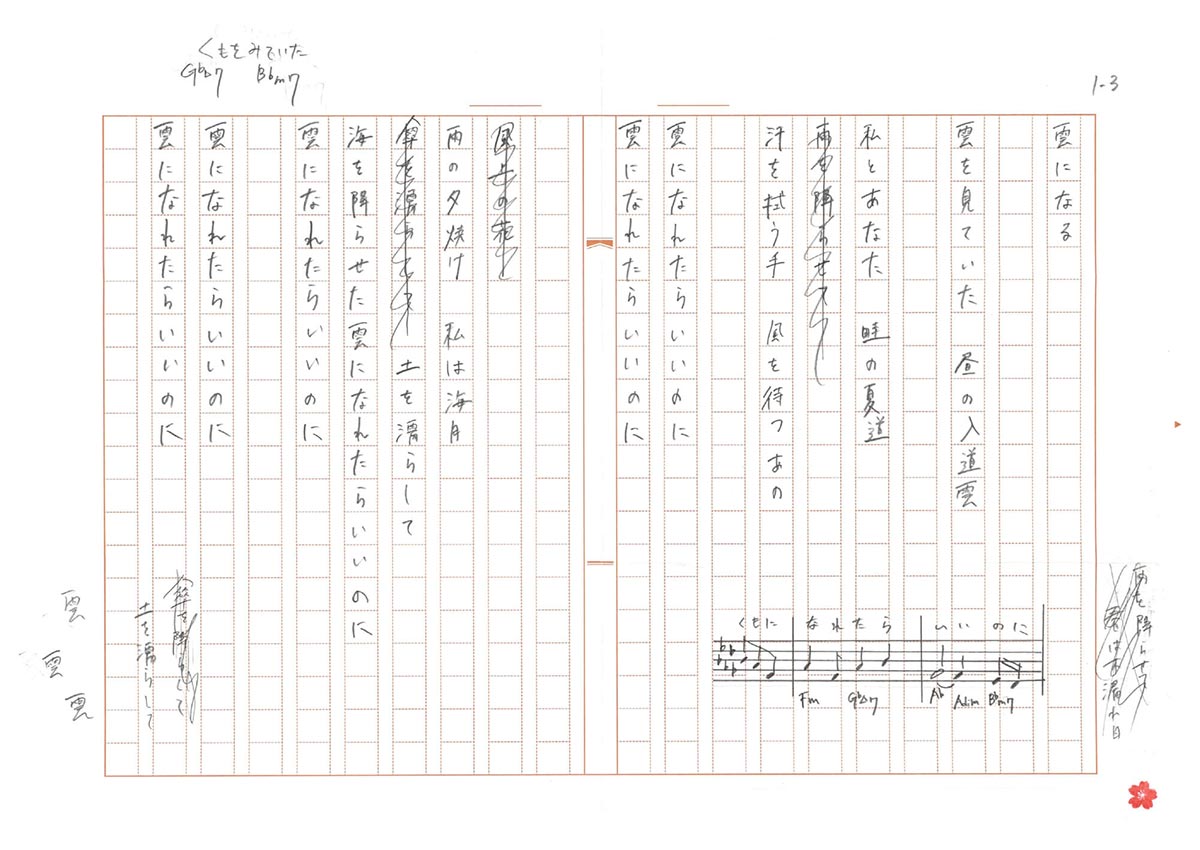 くもをみていた
G♭△7 B♭m7
1-3
雲になる
雲を見ていた 昼の入道雲
私とあなた 畦の夏道
雨を降らせて
汗を拭う手 風を待つあの
雲になれたらいいのに
雲になれたらいいのに
雨の夕焼け 私は海月
傘を濡らして 土を濡らして
海を降らせた雲になれたらいいのに
雲になれたらいいのに
雲になれたらいいのに
雲になれたらいいのに
くもに なれたら いいのに
Fm G♭△7 A♭ Adim B♭m7
雨を降らせて
傘を降らして
土を濡らして
雲
雲
雲